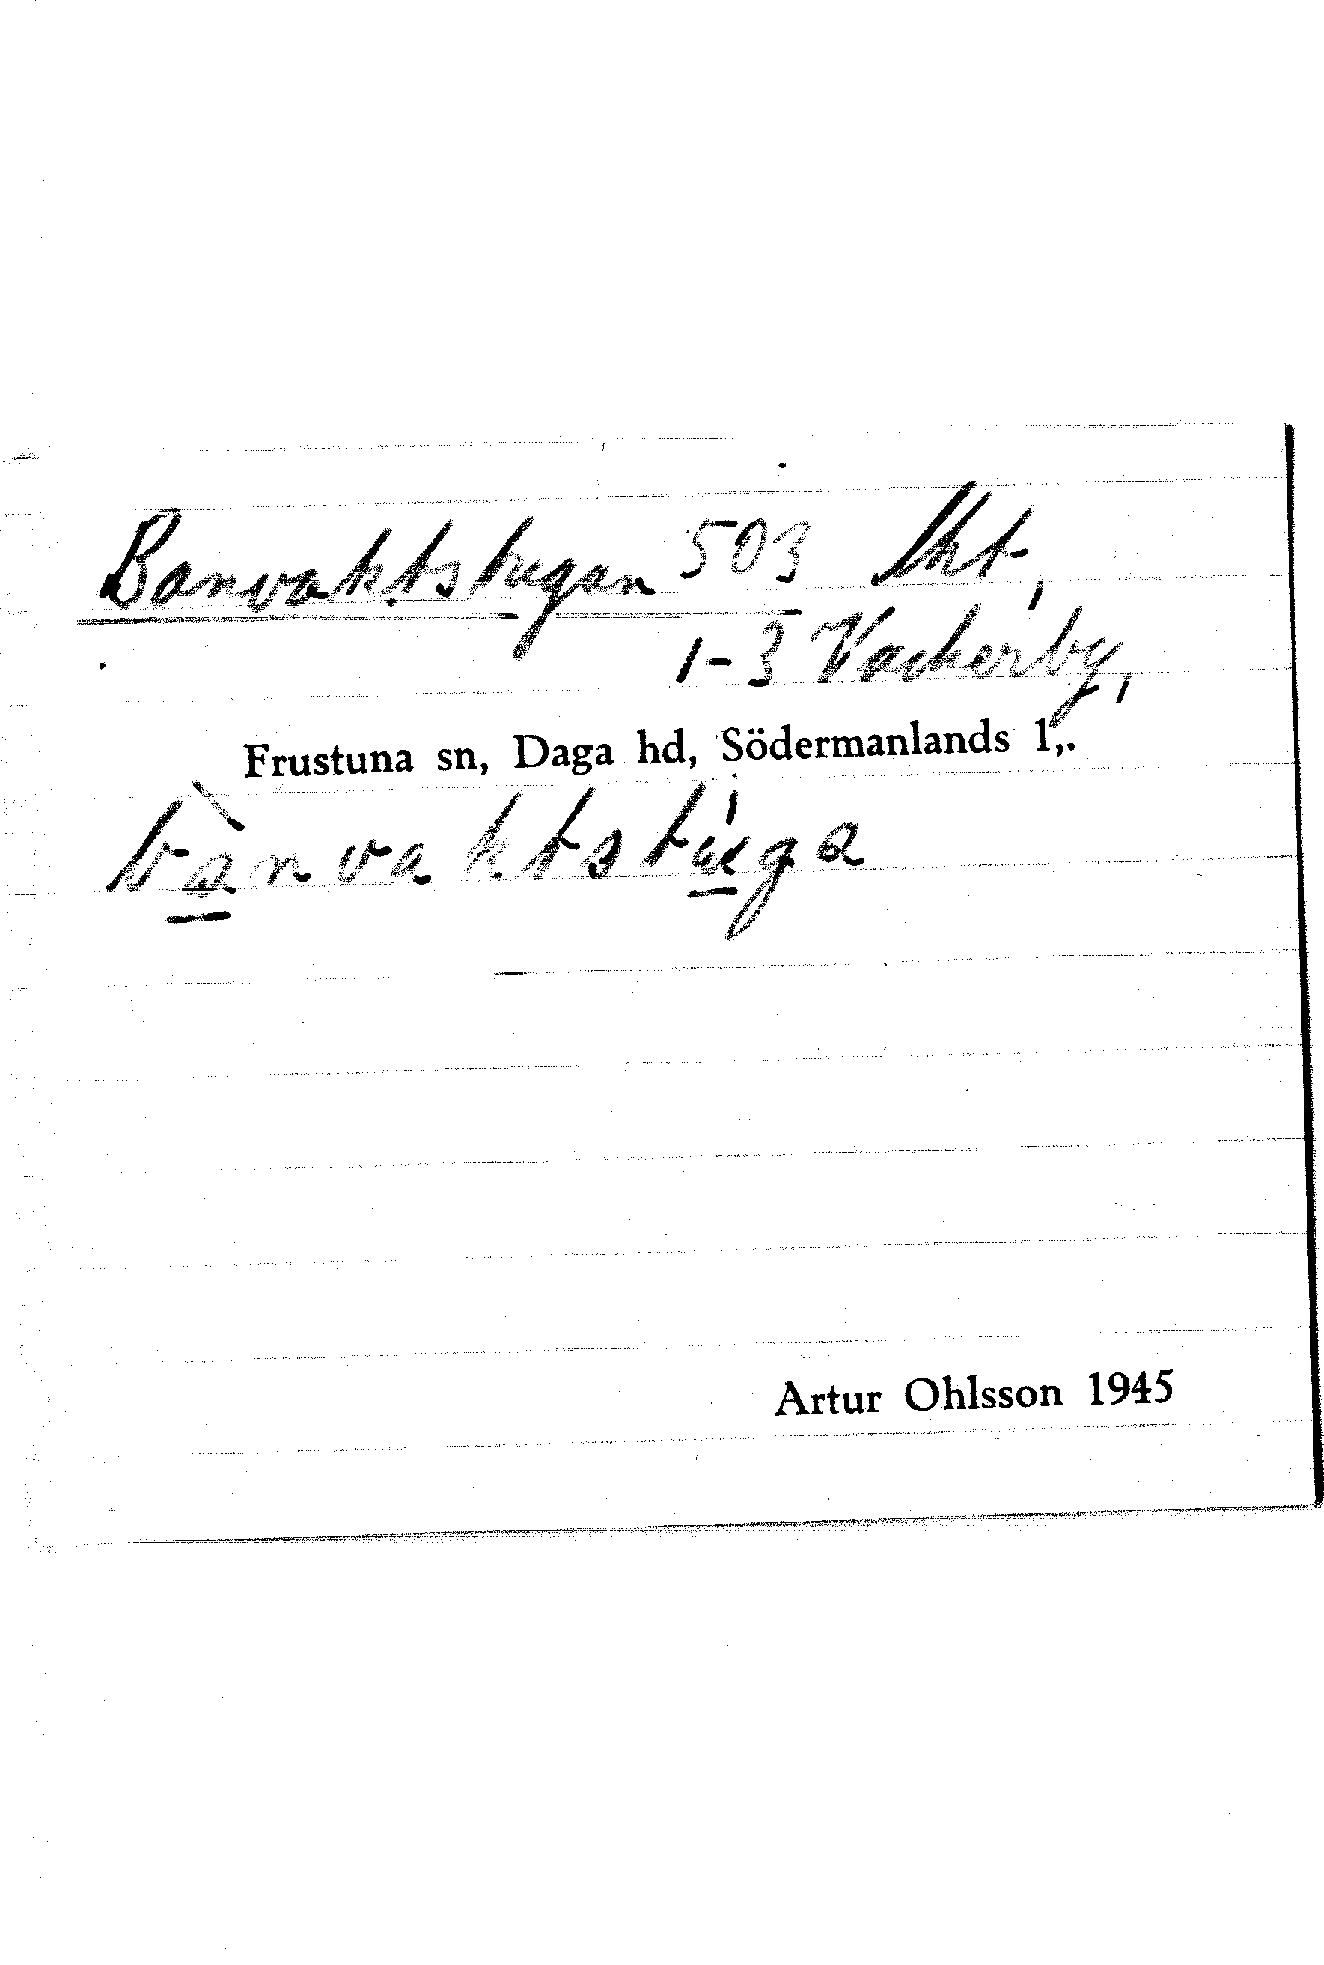 Banvaktstugan 503 lht,
1-3 Vackerby,
Frustuna sn, Daga hd, Södermanlands l,.
bànvaktstúga
Artur Ohlsson 1945